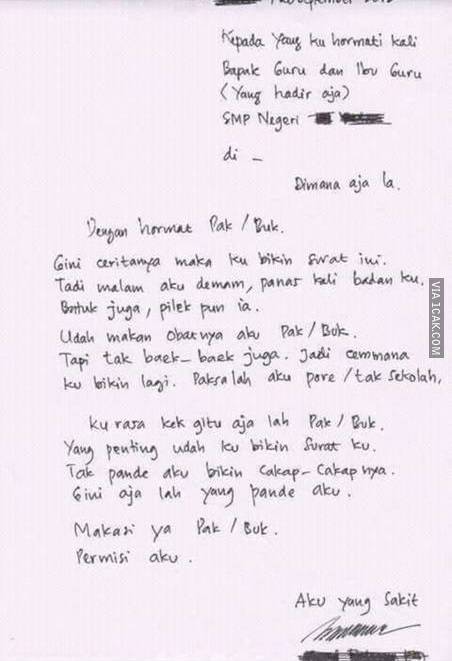 Kepada Yang ku hormati kali
Bapak Guru dan Ibu Guru
(Yang hadir aja)
SMP Negeri
di -
Dimana aja la.
Dengan hormat Pak / Buk.
Gini ceritanya maka ku bikin surat ini.
Tadi malam aku demam, panas kali badan ku.
Batuk juga, pilek pun ia.
Udah makan obatnya aku Pak / Buk.
Tapi tak baek-baek juga. Jadi cemmana
ku bikin lagi. Paksalah aku pore / tak sekolah,
ku rasa kek gitu aja lah Pak / Buk.
Yang penting udah ku bikin surat ku.
Tak pande aku bikin cakap-cakapnya.
Gini aja lah yang pande aku.
Makasi ya Pak / Buk.
Permisi aku.
Aku yang sakit
VIA 1CAK.COM